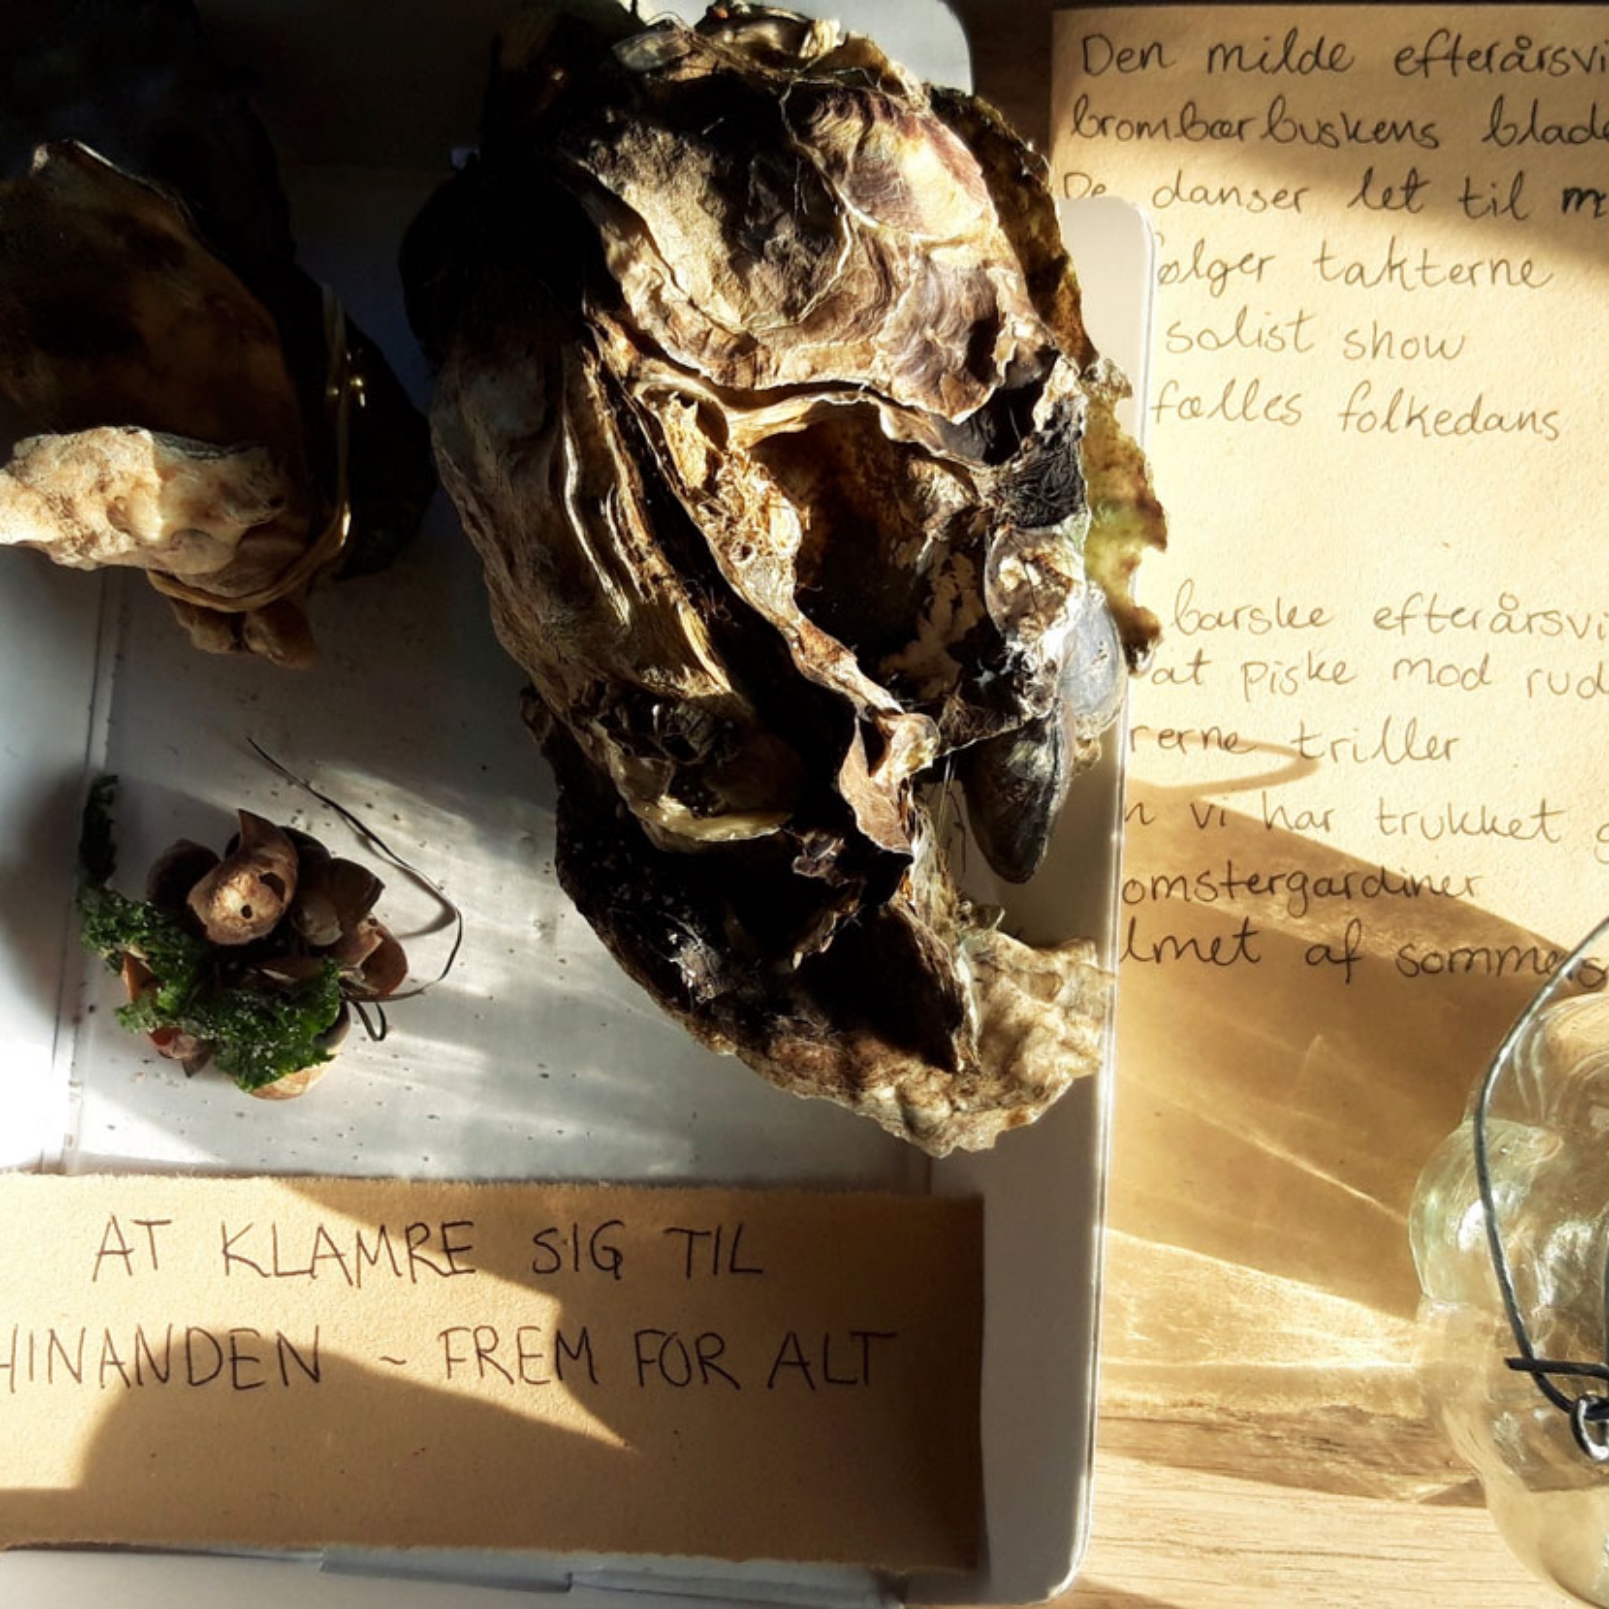 Den milde efterårsvi
brombærbuskens blade
De danser let til m
ølger takterne
solist show
fælles folkedans
barske efterårsvi
at piske mod rud
rerne triller
n vi har trukket g
omstergardiner
lmet af sommers
AT KLAMRE SIG TIL
HINANDEN ~ FREM FOR ALT